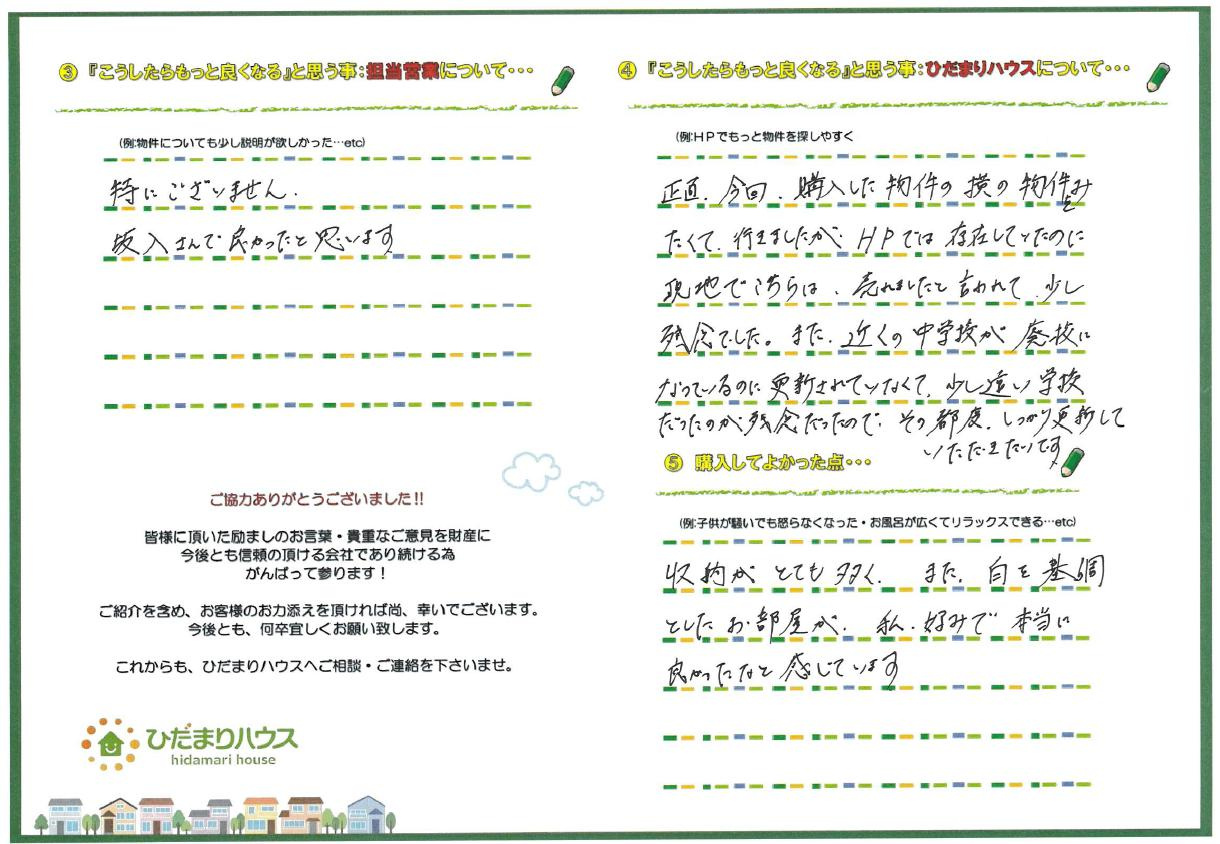 ③『こうしたらもっと良くなる』と思う事:担当営業について・・・
(例:物件についても少し説明が欲しかった…etc)
特にございません.
坂入さんで良かったと思います
ご協力ありがとうございました!!
皆様に頂いた励ましのお言葉・貴重なご意見を財産に
今後とも信頼の頂ける会社であり続ける為
がんばって参ります!
ご紹介を含め、お客様のお力添えを頂ければ尚、幸いでございます。
今後とも、何卒宜しくお願い致します。
これからも、ひだまりハウスへご相談・ご連絡を下さいませ。
ひだまりハウス
hidamari house
④『こうしたらもっと良くなる』と思う事:ひだまりハウスについて・・・
(例:HPでもっと物件を探しやすく
正直、今回、購入した物件の横の物件をみ
たくて、行きましたが HPでは存在していたのに
現地でこちらは、売れましたと言われて、少し
残念でした。また、近くの中学校が廃校に
なっているのに更新されていなくて、少し遠い学校
だったのが残念だったので、その都度、しっかり更新して
いただきたいです
⑤ 購入してよかった点・・・
(例:子供が騒いでも怒らなくなった・お風呂が広くてリラックスできる…etc)
収納がとても多く、また、白を基調
としたお部屋が、私、好みで本当に
良かったなと感じています